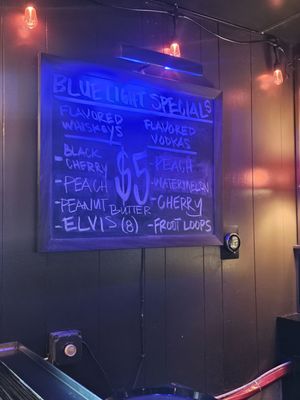 BLUE LIGHT SPECIALS
FLAVORED
WHISKEYS
- BLACK
CHERRY
- PEACH
- PEANUT BUTTER
- ELVIS (8)
$5
FLAVORED
VODKAS
- PEACH
- WATERMELON
- CHERRY
- FROOT LOOPS